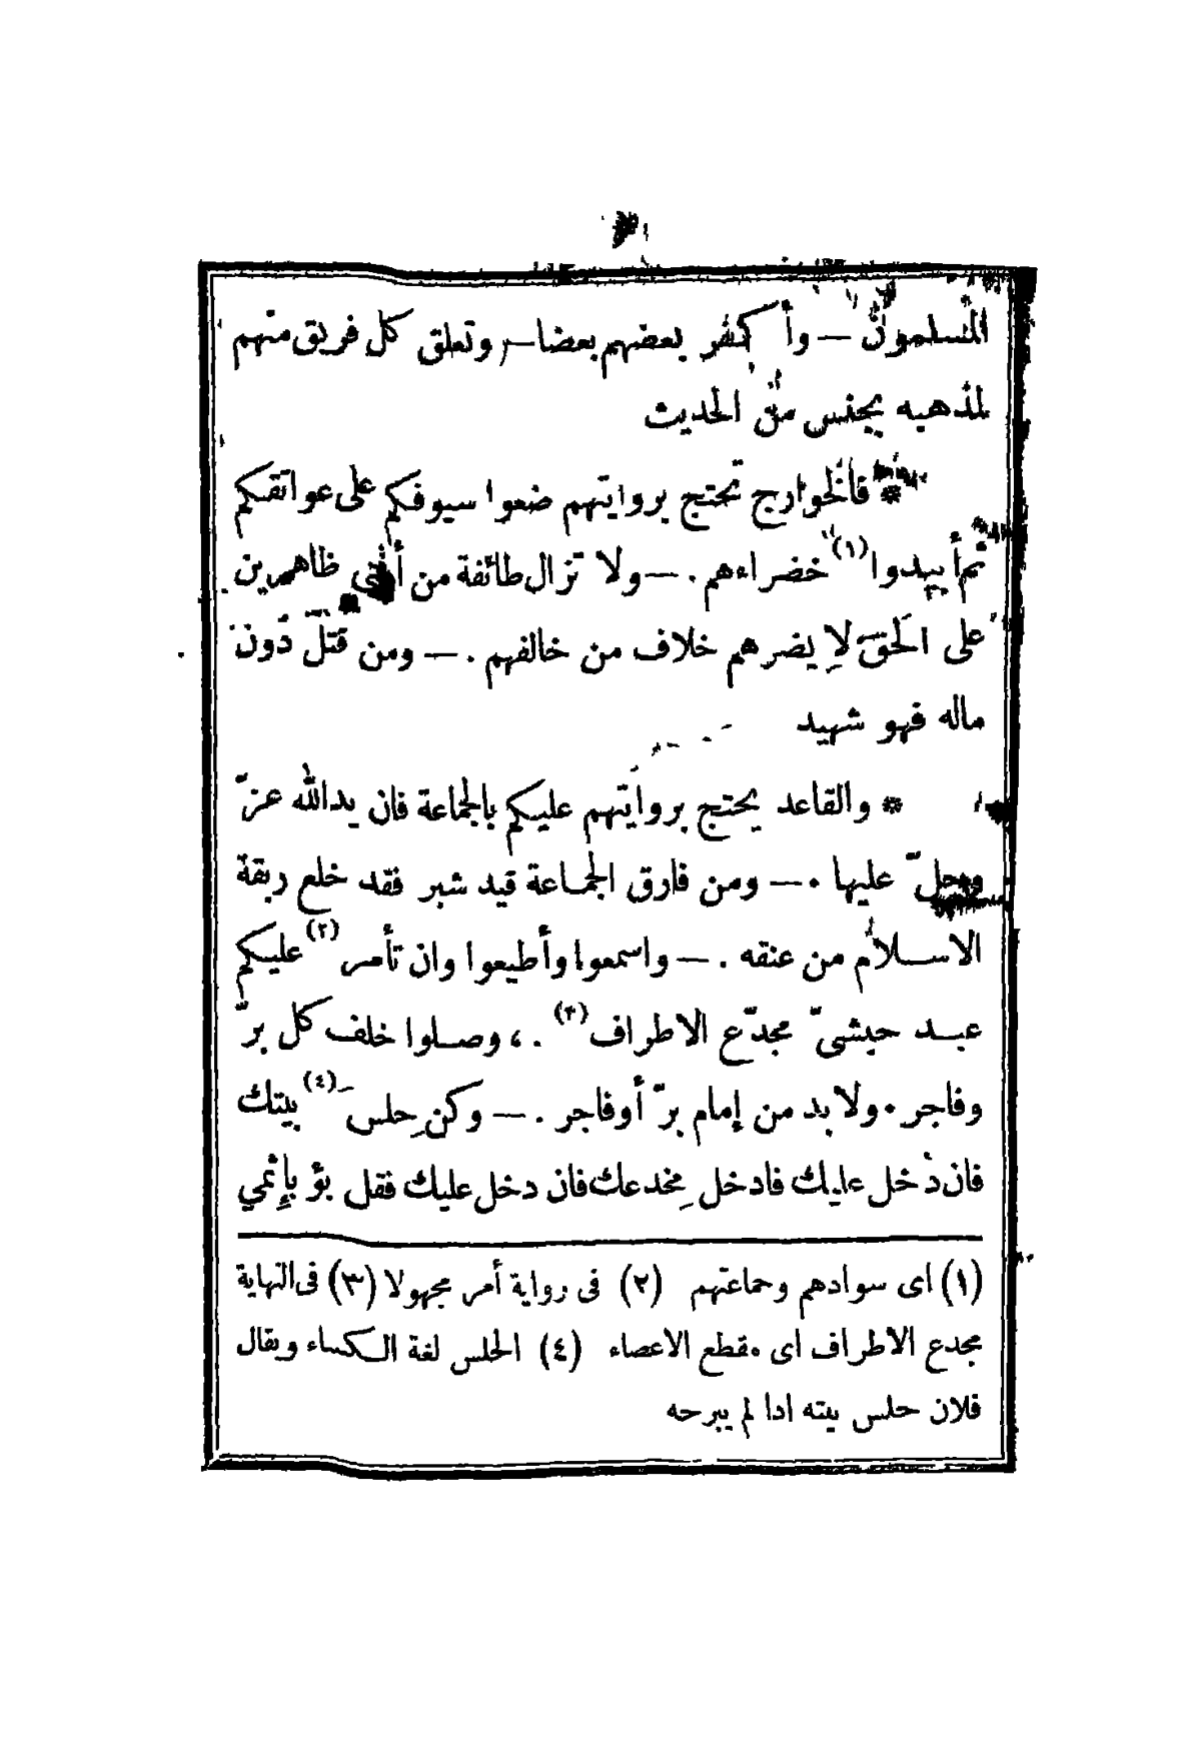 المسلمون — وأكفر بعضهم بعضا — وتعلق كل فريق منهم
لمذهبه بجنس من الحديث
* فالخوارج تحتج بروايتهم ضعوا سيوفكم على عواتقكم
ثم أبيدوا (١) خضراءهم . — ولا تزال طائفة من أمتي ظاهرين
على الحق لا يضرهم خلاف من خالفهم . — ومن قتل دون
ماله فهو شهيد
* والقاعد يحتج بروايتهم عليكم بالجماعة فان يد الله عزّ
وجلّ عليها . — ومن فارق الجماعة قيد شبر فقد خلع ربقة
الاسلام من عنقه . — واسمعوا وأطيعوا وان تأمر (٢) عليكم
عبد حبشىّ مجدّع الاطراف (٣) . ، وصلوا خلف كل برّ
وفاجر . ولا بد من إمام برّ أو فاجر . — وكن حِلس (٤) بيتك
فان دخل عليك فادخل مِخدعك فان دخل عليك فقل بؤ بإِثمي
(١) اى سوادهم وجماعتهم (٢) فى رواية أمر مجهولا (٣) فى النهاية
مجدع الاطراف اى مقطع الاعضاء (٤) الحلس لغة الكساء ويقال
فلان حلس بيته اذا لم يبرحه